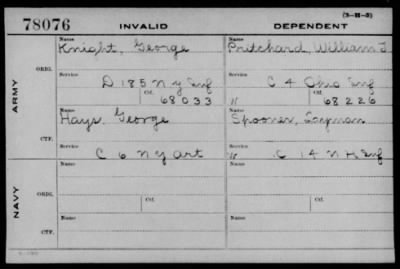 (3-11-3)
78076 INVALID DEPENDENT
Name Name
Knight, George Pritchard, William T.
ORIG.
Service Service
D 185 N Y Inf C 4 Ohio Inf
Ctf. Ctf.
68033 " 68226
ARMY
Name Name
Hays, George Spooner, Layman
CTF.
Service Service
C 6 N Y Art " C 14 N H Inf
Name Name
ORIG.
Service Ctf. Service Ctf.
NAVY
Name Name
CTF.
Service Service